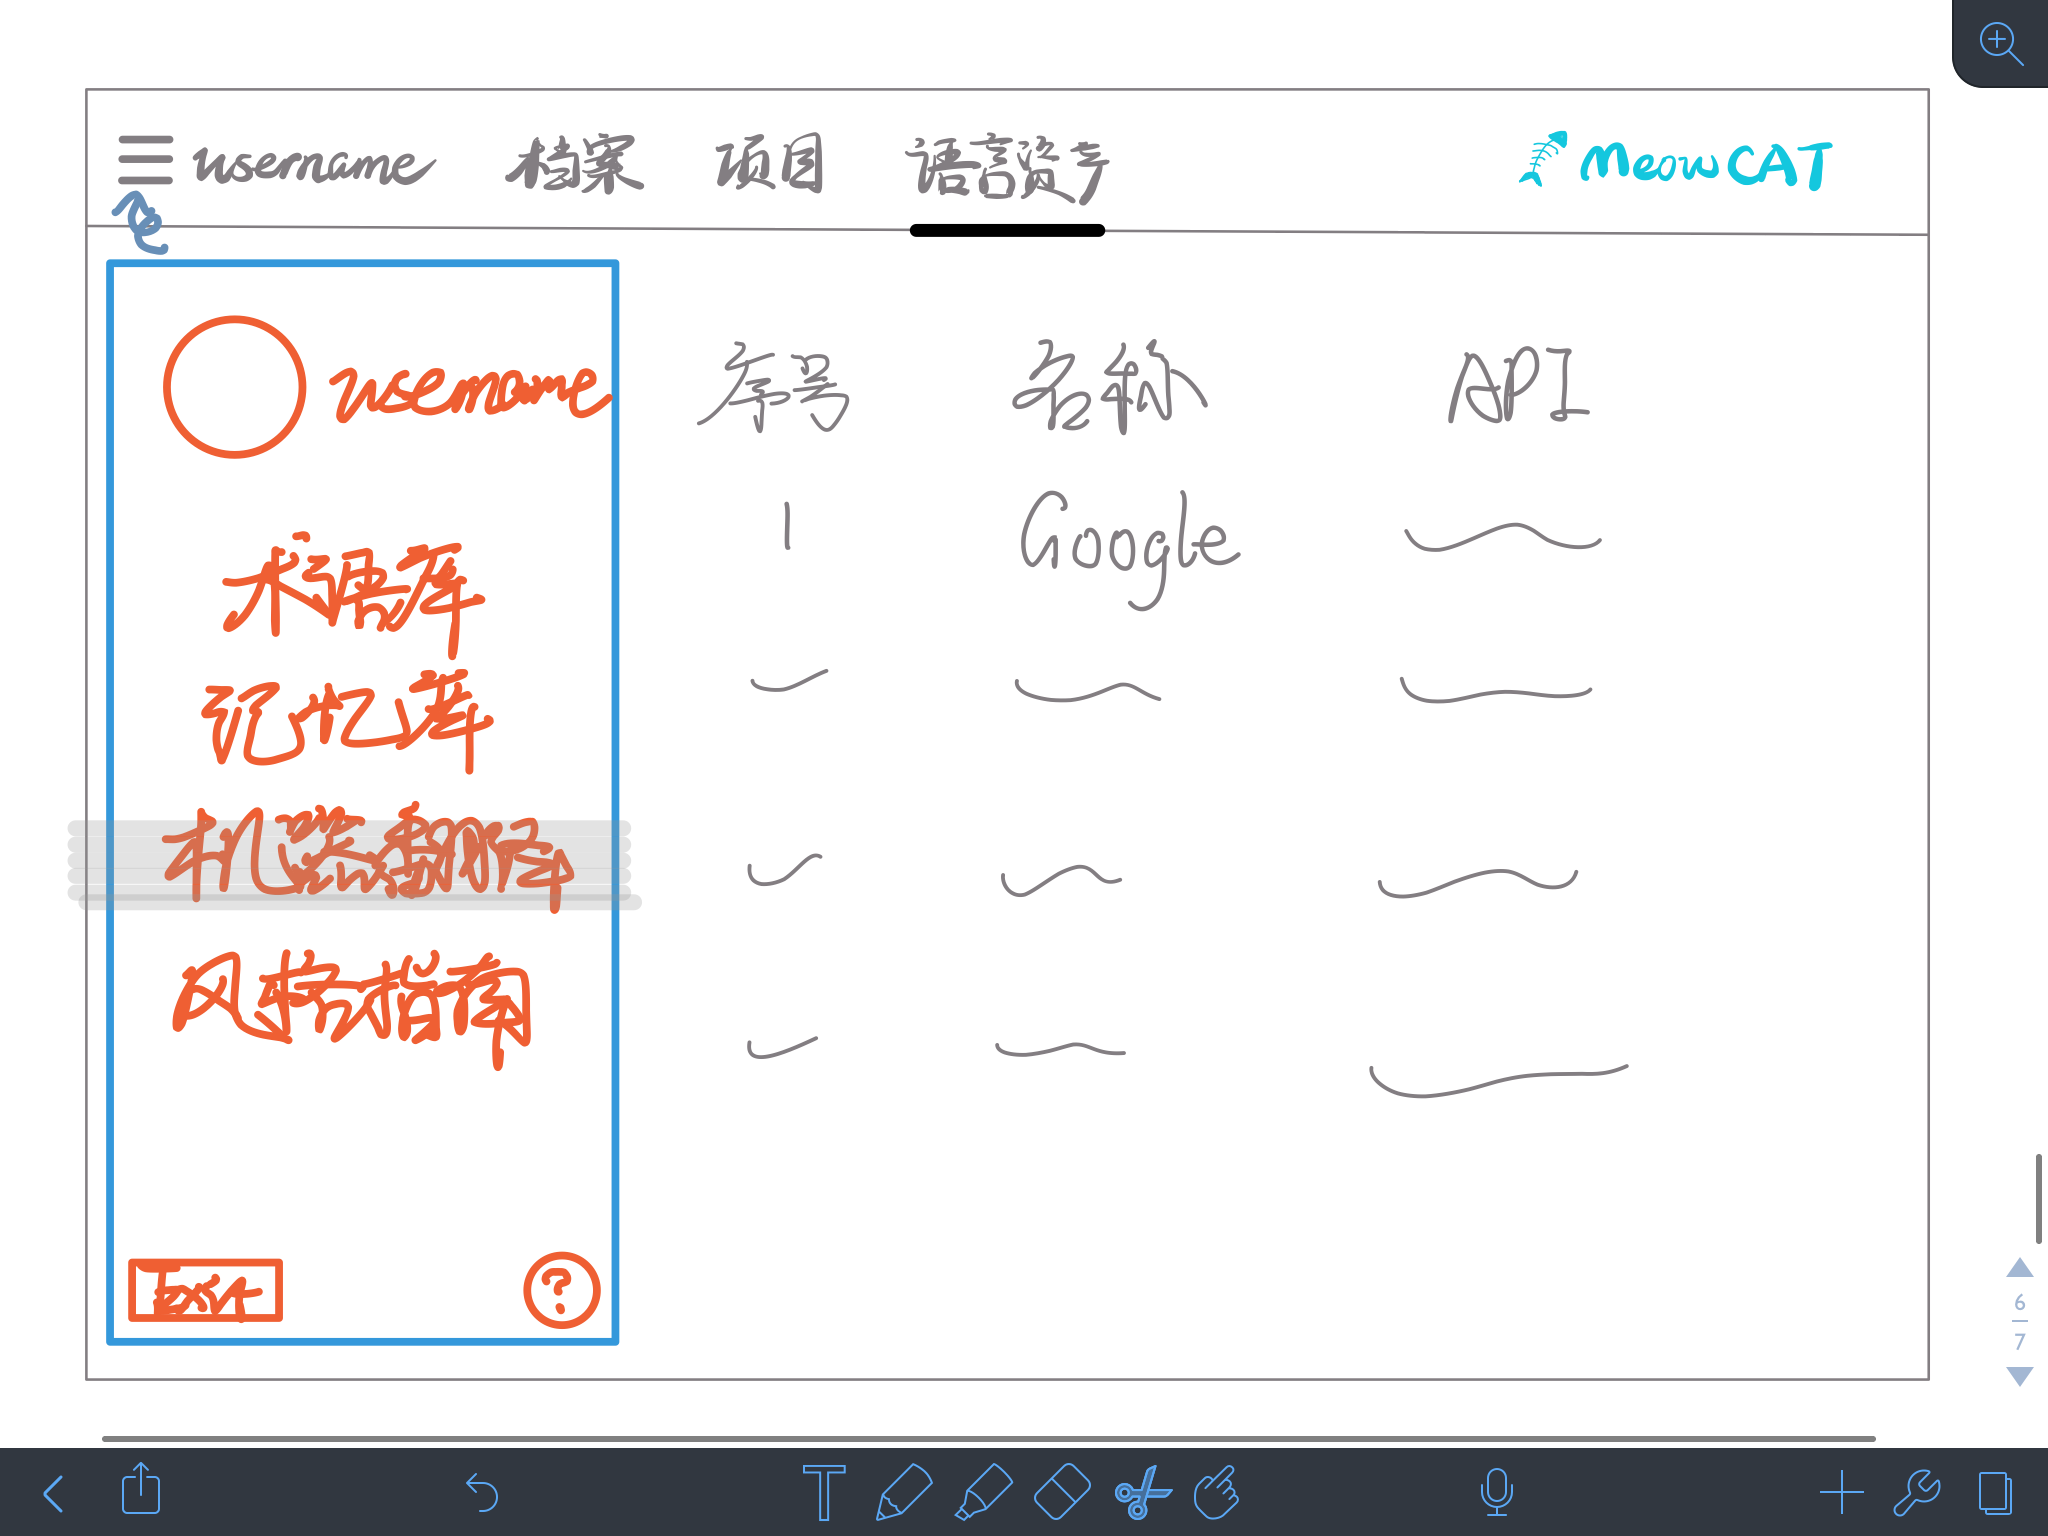 username 档案 项目 语言资产 MeowCAT
username
术语库
记忆库
机器翻译
风格指南
Exit
?
序号 名称 API
1 Google
6
7